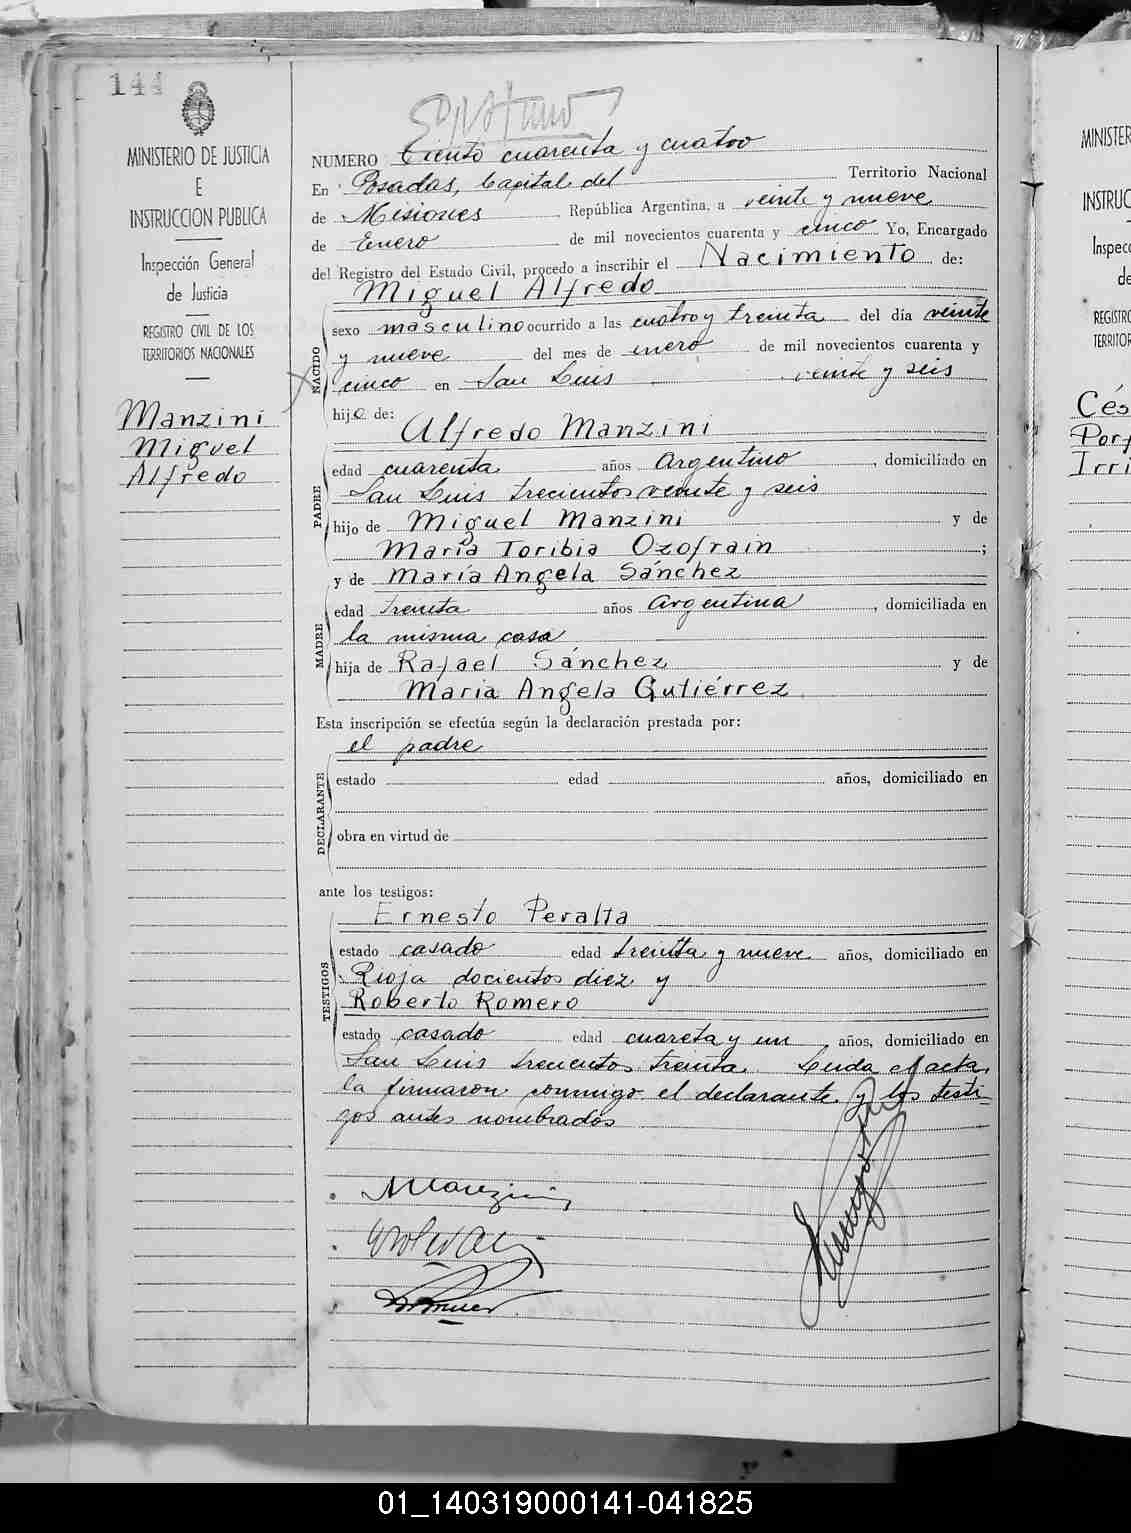 144
MINISTERIO DE JUSTICIA
E
INSTRUCCION PUBLICA
Inspección General
de Justicia
REGISTRO CIVIL DE LOS
TERRITORIOS NACIONALES
Manzini
Miguel
Alfredo
NUMERO Ciento cuarenta y cuatro
En Posadas, Capital del Territorio Nacional
de Misiones República Argentina, a veinte y nueve
de Enero de mil novecientos cuarenta y cinco Yo, Encargado
del Registro del Estado Civil, procedo a inscribir el Nacimiento de:
Miguel Alfredo
NACIDO
sexo masculino ocurrido a las cuatro y treinta del día veinte
y nueve del mes de enero de mil novecientos cuarenta y
cinco en San Luis veinte y seis
hijo de:
Alfredo Manzini
PADRE
edad cuarenta años Argentino, domiciliado en
San Luis trecientos veinte y seis
hijo de Miguel Manzini y de
María Toribia Ozofrain ;
y de María Angela Sánchez
MADRE
edad treinta años Argentina, domiciliada en
la misma casa
hija de Rafael Sánchez y de
Maria Angela Gutiérrez
Esta inscripción se efectúa según la declaración prestada por:
el padre
DECLARANTE
estado edad años, domiciliado en
obra en virtud de
ante los testigos:
Ernesto Peralta
TESTIGOS
estado casado edad treinta y nueve años, domiciliado en
Rioja docientos diez y
Roberto Romero
estado casado edad cuareta y un años, domiciliado en
San Luis trecientos treinta. Leida el acta,
la firmaron conmigo el declarante y los testi-
gos antes nombrados
Manzini
MINISTER
INSTRUC
Inspecc
de
REGISTRO
TERRITOR
Cés
Porf
Irri
01_140319000141-041825